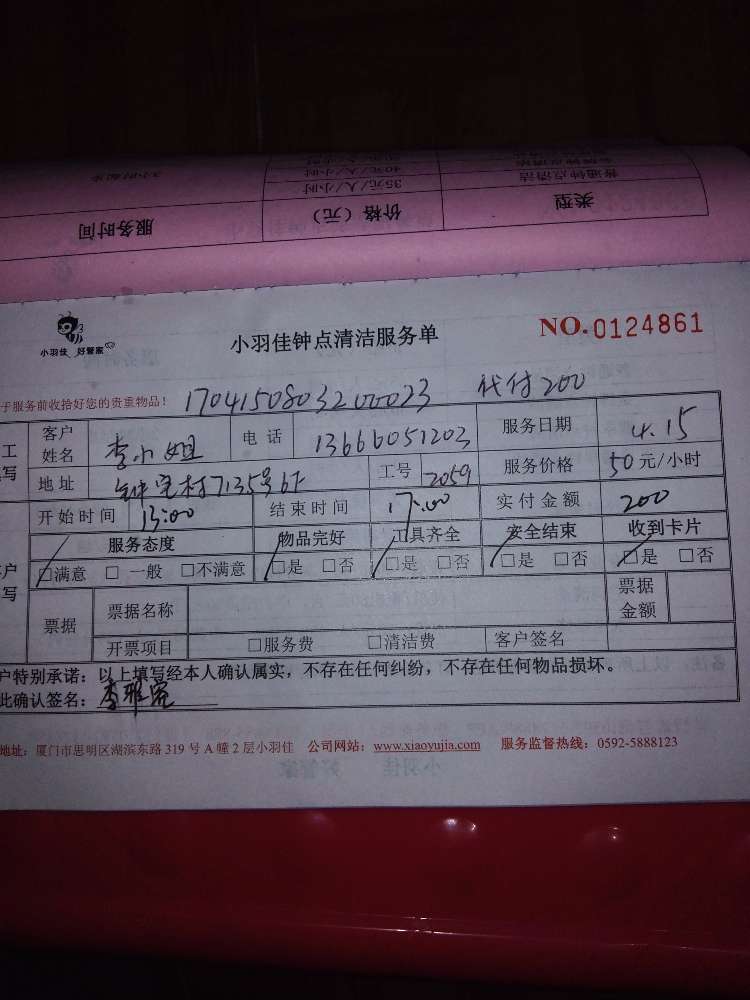 3小时起步
40元/人/小时
普通钟点清洁
35元/人/小时
服务时间 价格（元） 类型
小羽佳 好管家
小羽佳钟点清洁服务单
NO.0124861
于服务前收拾好您的贵重物品！ 1704150803200023 代付200
工 客户姓名 李小姐 电话 13666051203 服务日期 4.15
写 地址 钟宅村7135号6F 工号 2059 服务价格 50元/小时
开始时间 13:00 结束时间 17:00 实付金额 200
服务态度 物品完好 工具齐全 安全结束 收到卡片
户写 □满意 □一般 □不满意 □是 □否 □是 □否 □是 □否 □是 □否
票据 票据名称 票据金额
开票项目 □服务费 □清洁费 客户签名
户特别承诺：以上填写经本人确认属实，不存在任何纠纷，不存在任何物品损坏。
此确认签名：李雅
地址：厦门市思明区湖滨东路319号A幢2层小羽佳 公司网站：www.xiaoyujia.com 服务监督热线：0592-5888123